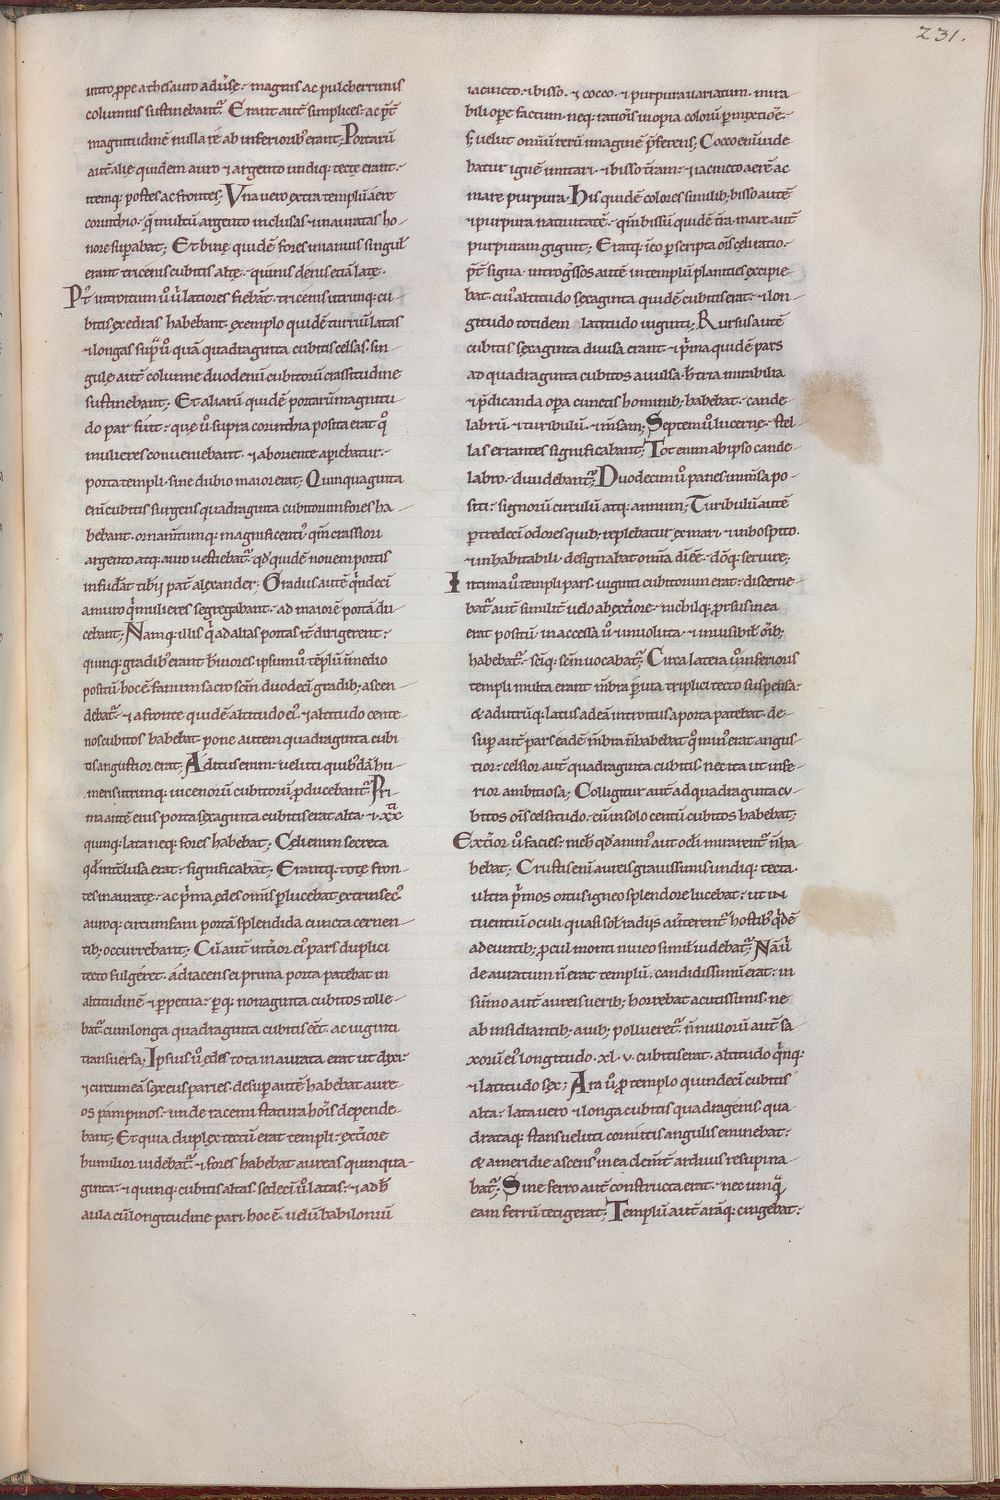 231.
intro p̱pe a thesauro adũse᷑· magnis ac pulcherrimis
columnis sustinebant᷑. Erant autē simplices· ac p̃t̃
magnitudinē nulla rē ab inferiorib; erant; Portarū
aut̄ alie quidem auro ⁊ argento undiq; tecte erant·
itemq; postes ac frontes; Una vero extra templū aere
corinthio· q̄ multū argento inclusas ⁊ inauratas ho-
nore superabat; Et binę quidē fores in ianuis singul̃
erant tricenis cubitis altę· quinis denis etiā latę·
P̃t̃ introitum ũ ũ latiores fiebant̃· tricenis utrimq; cu-
bitis exedras habebant exemplo quidē turriū latas
⁊ longas sup̃ ũ quā quadraginta cubitis celsas· sin-
gule autē colunne duodenū cubitorū crassitudine
sustinebant; Et aliarū quidē portarū magnitu-
do par fuit· quę ũ supra corinthia posita erat q̊
mulieres conveniebant· ⁊ ab oriente apiebatur·
porta templi· sine dubio maior erat; Quinquaginta
enī cubitis surgens quadraginta cubitorum fores ha-
bebant· ornamtumq; magnificenti᷒ qm̄ crassiori
argento atq; auro vestiebat᷑· qd̕ quidē novem portis
infudāt tib̕ij pat̃ alexander; Gradus autē q̄ndeci
a muro q̄ mulieres segregabant· ad maiorē portā du-
cebant; Namq; illis q̄ ad alias portas it̃ dirigerent·
quinq; gradib; erant b̕viores ipsum ũ tēplū ĩ medio
positū hoc ē fanum sacro scm̃ duodeci gradib; ascen-
debat᷑· ⁊ a fronte quidē altitudo ei᷒ ⁊ latitudo cente-
nos cubitos habebat· pone autem quadraginta cubi
tis angustior erat; Aditus enim· veluti quib᷒dā hu-
meris utrimq; vicenorū cubitorū p̱ducebant᷑ Pri-
ma autē eius porta septuaginta cubitis erat alta· ⁊ xx
quinq; lata neq; fores habebat; Celi enim secreta
qd̕ intclusa erat· significabat; Erantq; totę fron-
tes inauratę· ac p̄ma ędes omis p̱lucebat extrinsec᷒
auroq; circumfani portā splendida cuncta cernen-
tib; occurrebant; Cū aut̄ int̃ior ei᷒ pars duplici
tecto fulgeret· adiacens ei prima porta patebat in
altitudinē ⁊ p̱petua· p̱q; nonaginta cubitos tolle-
bat᷑ cum longa quadraginta cubitis eet̃· ac viginti
transversa; Ipsius ũ ędes tota inaurata erat ut dixi·
⁊ circum eā sexeus paries· desup autē habebat aure-
os pampinos· unde racemi statura hōis depende-
bant; Et quia duplex tectū erat templi· ext̃iore
humilior videbat᷑ ⁊ fores habebat aureas quinqua-
ginta· ⁊ quinq; cubitis altas· sedeci ũ latas· ⁊ ad b̕
aula cū longitudine pari hoc ē· velū babiloniū
iacincto· ⁊ bisso· ⁊ cocco· ⁊ purpura variatum· mira
bili opē factum· neq; ratiōis inopia colorū p̱mixtiōe·
s; velut omniū rerū imaginē p̄ferens; Cocco enī vide
batur ignē imitari· ⁊ bisso t̃ram· ⁊ iacincto aerē ac
mare purpura· His quidē colores similib; bisso autē
⁊ purpura nativitatē· qm̄ bissū quidē t̃ra· mare aut̄
purpuram gignit; Eratq; ĩeo p̱scripta ōis cęli ratio·
p̃t̃ signa· introg̃ssos autē in templū planities excipie-
bat· cui᷒ altitudo sexaginta quidē cubitis erat· ⁊ lon-
gitudo totidem latitudo viginti; Rursus autē
cubitis sexaginta divisa erant ⁊ p̄ma quidē pars
ad quadraginta cubitos avulsa· h̄ tria mirabilia
⁊ p̄dicanda opa cunctis hominib; habebat· cande-
labrū· ⁊ turibulū· ⁊ m̄sam; Septem ũ lucernę· stel-
las errantes significabant; Tot enim ab ipso cande-
labro· dividebant᷑; Duodecim ũ panes in m̄sa po-
siti· signorū circulū atq; annum; Turibulū autē
p̱ tredeci odores quib; replebatur ex mari· ⁊ inhospito·
⁊ inhabitabili· designabat om̄ia dī ēē· dōq; servire;
Intima ũ templi pars· viginti cubitorum erat· discerne-
bat᷑ aut̄ similit̃ velo ab ext̃iore· nichilq; p̱rsus in ea
erat positū· inaccessa ũ ⁊ inviolata· ⁊ invisibil̃ ōib;
habebat᷑· sc̄iq; sc̄m vocabat᷑; Circa latera ũ inferioris
templi multa erant m̄bra p̱via triplici tecto suspensa·
& ad utrūq; latus ad eā introitus a porta patebat· de-
sup aut̄ pars eadē m̄bra ñ habebat q̊ min᷒ erat angus-
tior· celsior aut̄ quadraginta cubitis· nec ita ut infe-
rior ambitiosa; Colligitur aut̄ ad quadraginta cu-
bitos ōis celsitudo· cū in solo centū cubitos habebat;
Ext̃ior ũ facies· nich̕ qd̕ anim᷒ aut oc̕li mirarent᷑ ñ ha
bebat; Crustis enī aureis gravissimis undiq; tecta·
ultra p̄mos ortus igneo splendore lucebat· ut in-
tuentiū oculi quasi sol̃ radijs av̕terent᷑ hostib᷒ q̄dē
adeuntib; p̱cul monti niveo simil̃ videbat᷑; Nā ũ
deauratum ñ erat templū· candidissimū erat· in
sūmo aut̄ aureis verib; horrebat acutissimis· ne
ab insidiantib; avib; pollueret᷑· ñ nullorū aut̄ sa-
xorū ei᷒ longitudo· xl· v· cubitis erat· altitudo q̄nq;
⁊ latitudo sex; Ara ũ p̱ templo quindeci cubitis
alta· lata vero ⁊ longa cubitis quadragenis· qua
drataq; stans veluti cornutis angulis eminebat·
& a meridie ascens᷒ in ea clem̄t̃ arduus resupina-
bat᷑; Sine ferro aut̄ constructa erat· nec umq̄
eam ferrū tetigerat; Templū aut̄ arāq; cingebat·